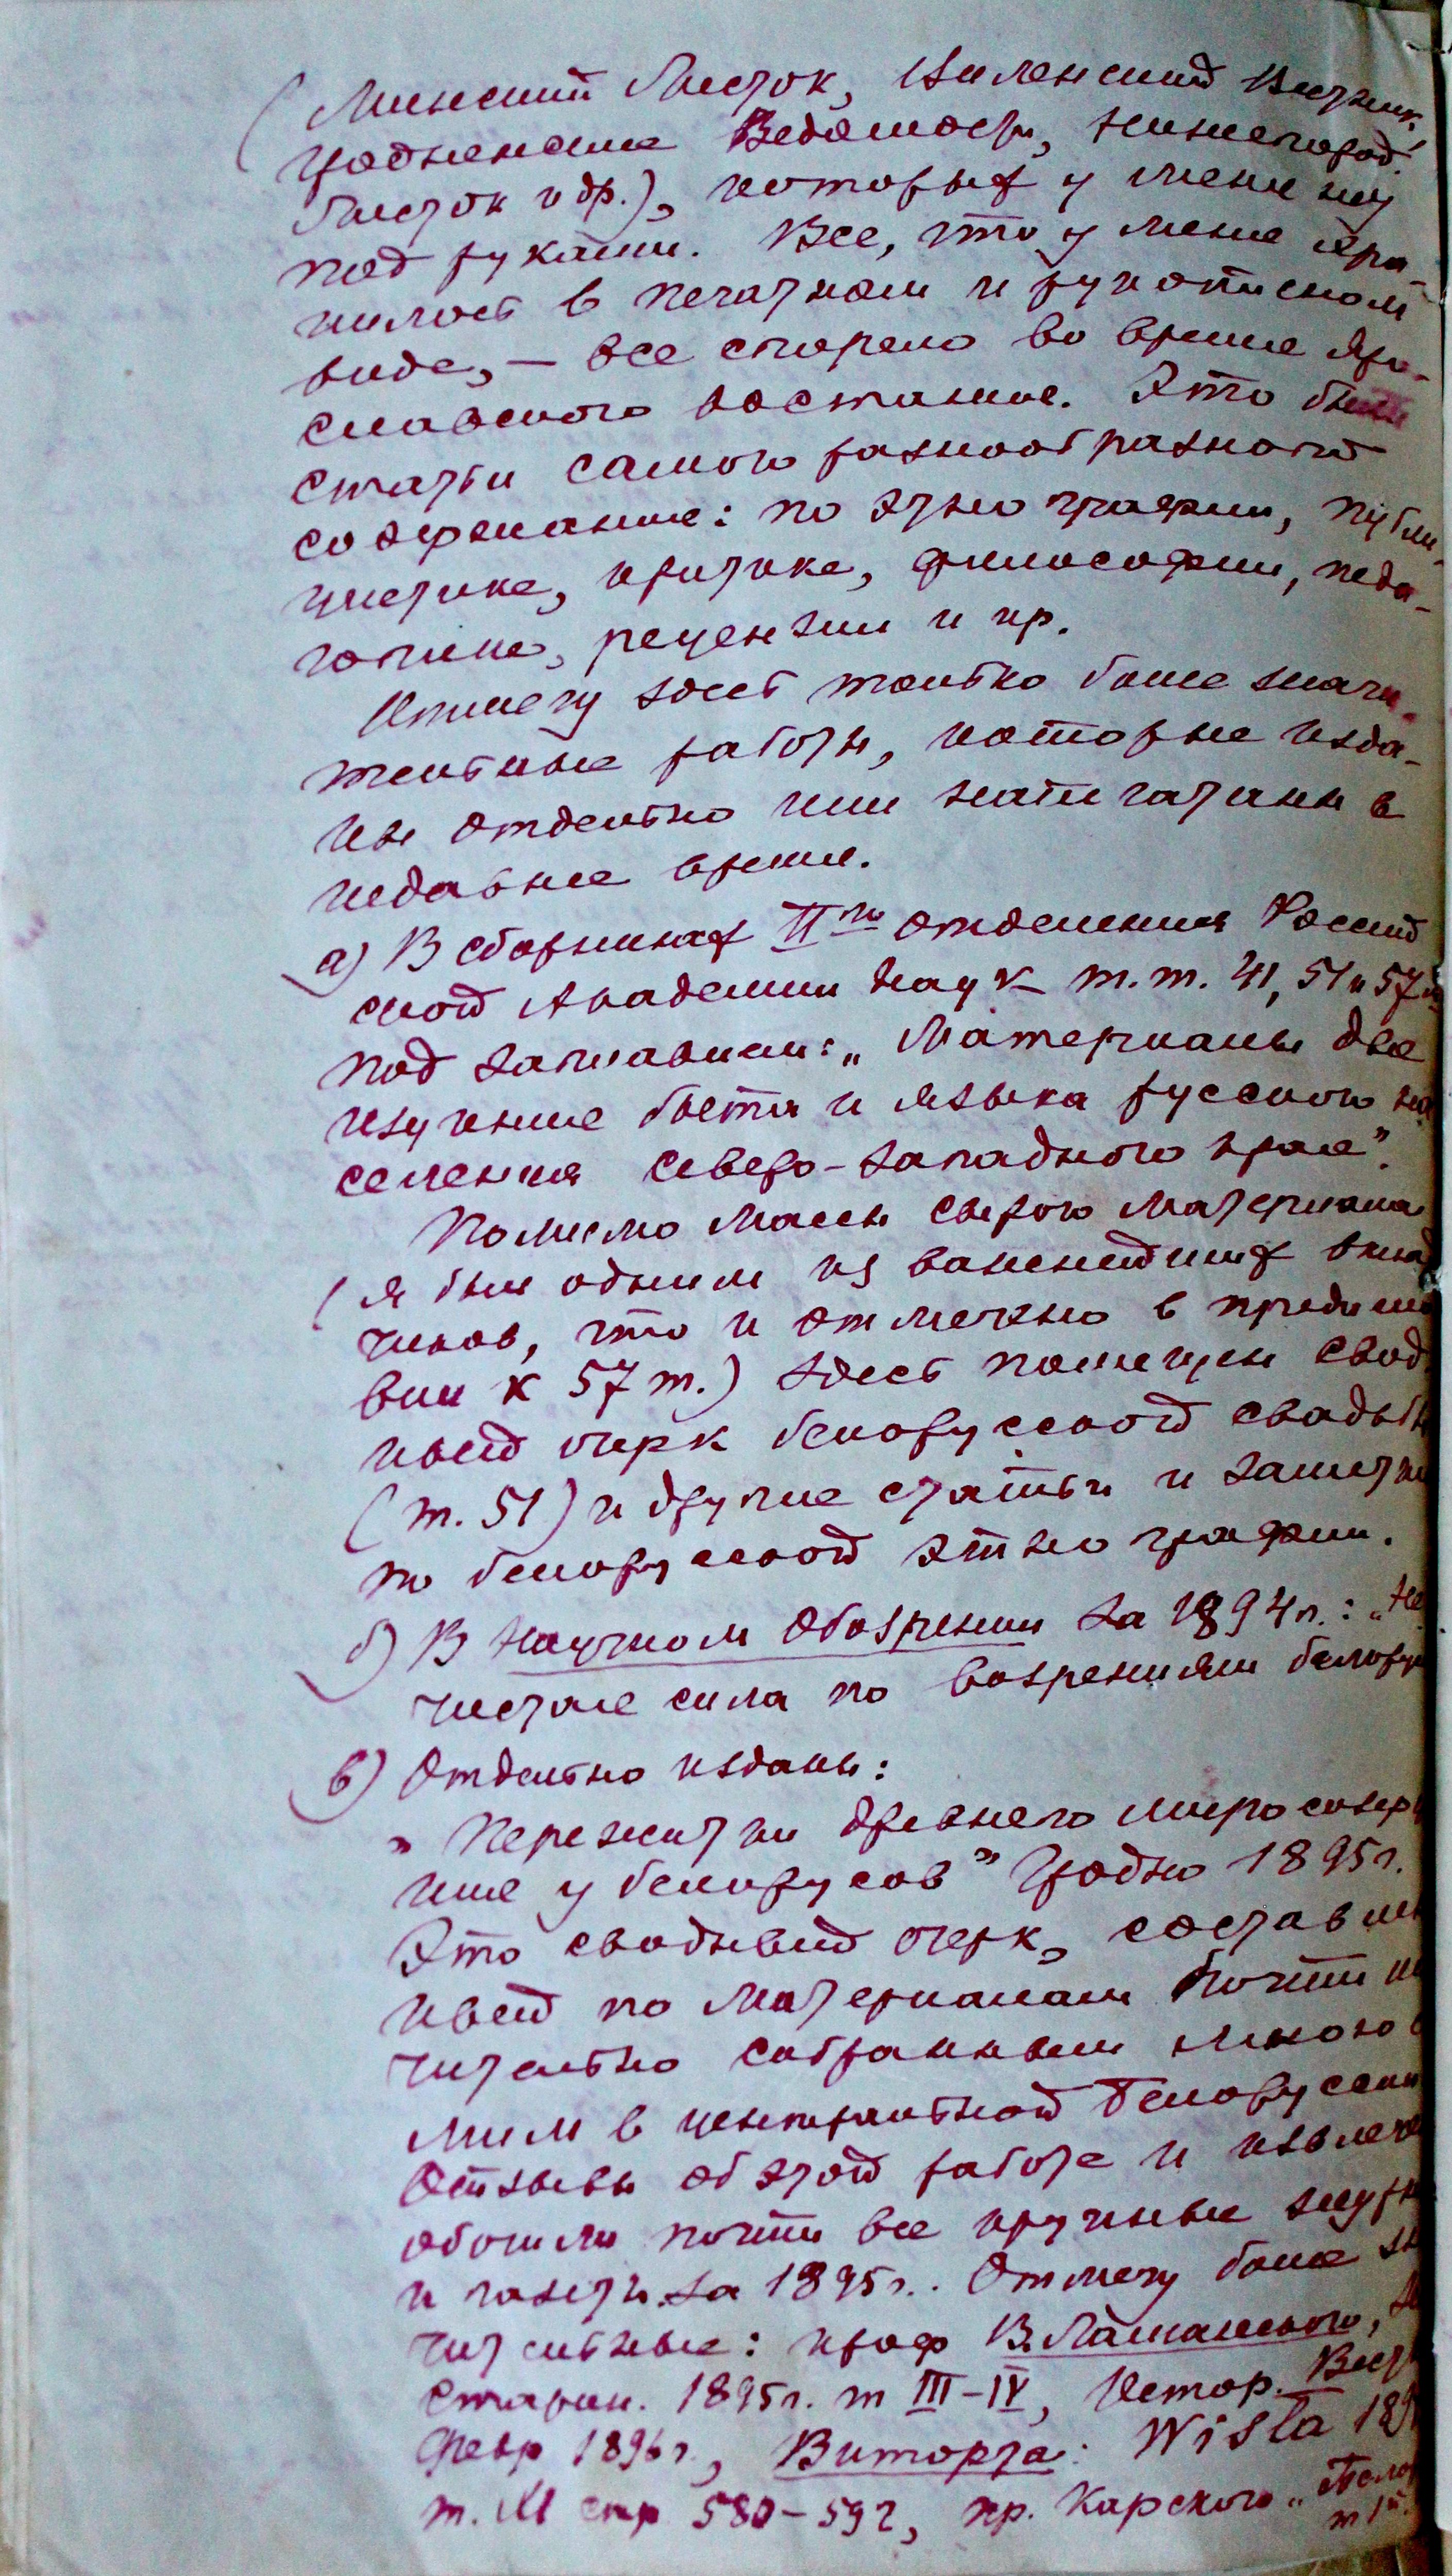 (Минский Листок, Виленский Вестник,
Гродненские Ведомости, Нижегород.
Листок и др.), которых у меня нет
под руками. Все, что у меня хра-
нилось в печатном и рукописном
виде, – все сгорело во время Яро-
славского востания. Это были
статьи самого разнообразного
содержания: по этнографии, публи-
цистике, критике, философии, педа-
гогике, рецензии и пр.
Отмечу здесь только более значи-
тельные работы, которые изда-
ны отдельно или напечатаны в
недавнее время.
а) В сборниках II го отделения Россий
ской Академии Наук т.т. 41, 51 и 57
под заглавием: „Материалы для
изучения быта и языка русского на
селения Северо-Западного края”.
Помимо массы сырого материала
(я был одним из важнейших вклад
чиков, что и отмечено в предисло
вии к 57 т.) здесь помещен свод
ный очерк белорусской свадьбы
(т. 51) и другие статьи и заметки
по белорусской этнографии.
б) В Научном Обозрении за 1894 г.: „Не
чистая сила по возрениям белорус
в) Отдельно изданы:
„Пережитки древнего миросозер
ния у белорусов” Гродно 1895 г.
Это сводный очерк, составлен
ный по материалам почти ис
чительно собранным мною
мим в центральной Белоруссии
Отзывы об этой работе и извлече
обошли почти все крупные журн
и газеты за 1895 г. Отмечу более зн
чительные: проф В. Ламанского, Ж
Старин. 1895 г. т III–IV, Истор. Вест
Февр 1896 г., Виторта: Wisła 189
т. XI стр 580–592, пр. Карского „Белор
т I